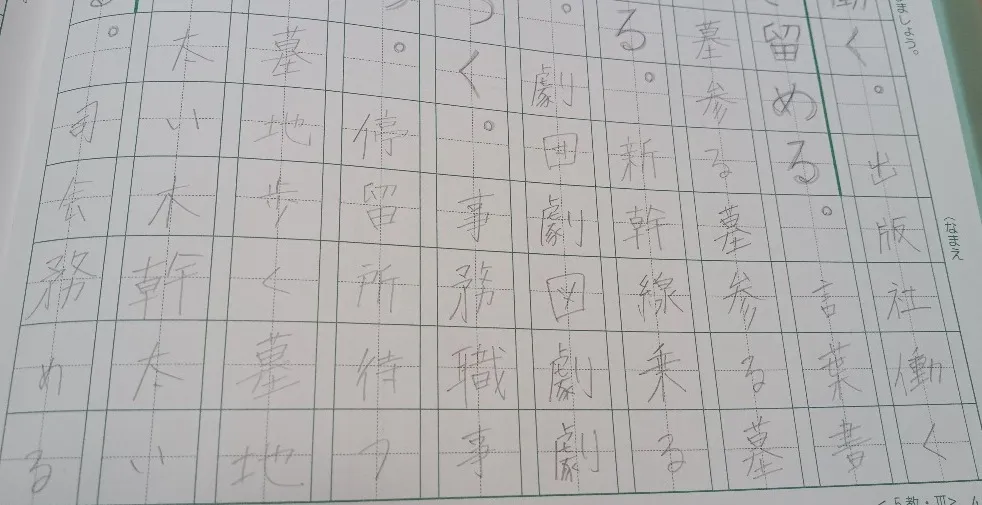 ましょう。
（なまえ
働く。出版社働く
留める。言葉書
墓参る墓参る墓
る。新幹線乗る
。劇団劇図劇劇
つく。事務職事
。停留所待つ
墓地歩く墓地
本い木幹太い
。司会務める
<5教・Ⅲ>